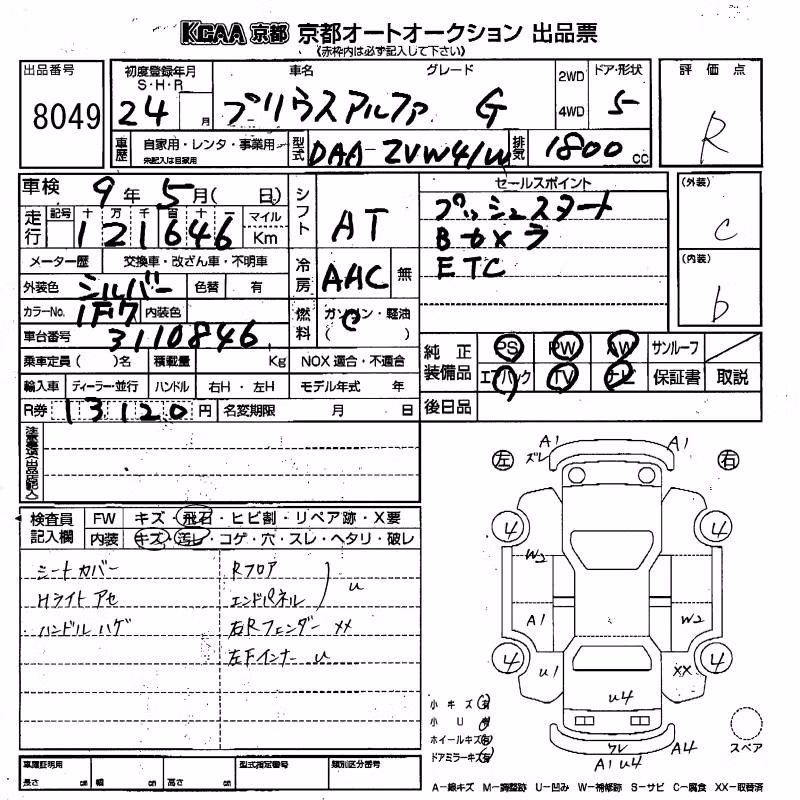 KCAA 京都 京都オートオークション 出品票
《赤枠内は必ず記入して下さい》
出品番号
8049
初度登録年月
S・H・R
24 月
車名 グレード
プリウスアルファ G
2WD
4WD
ドア・形状
5
評価点
R
車歴
自家用・レンタ・事業用
未記入は自家用
型式
DAA-ZVW41W
排気
1800 cc
車検 9年 5月( 日)
走行
記号 十 万 千 百 十 一
121646
マイル
Km
メーター歴 交換車・改ざん車・不明車
外装色 シルバー 色替 有
カラーNo. 1F7 内装色
車台番号 3110846
乗車定員( )名 積載量 Kg NOX適合・不適合
輸入車 ディーラー・並行 ハンドル 右H・左H モデル年式 年
R券 13120 円 名変期限 月 日
シフト AT
冷房 AAC 無
燃料 ガソリン・軽油
( )
セールスポイント
プッシュスタート
Bカメラ
ETC
(外装)
C
(内装)
b
純正装備品
PS PW AW サンルーフ
エアバック TV ナビ 保証書 取説
後日品
注意事項(出品店記入)
検査員記入欄
FW キズ・飛石・ヒビ割・リペア跡・X要
内装 キズ・汚レ・コゲ・穴・スレ・ヘタリ・破レ
シートカバー
Hライト アセ
ハンドル ハゲ
Rフロア
エンドパネル
u
右Rフェンダー XX
左Fインナー u
左 右
A1 A1
ズレ
4 4
W2
A1 W2
4 4
U1 XX
U4
ワレ A4
A1 U4
小キズ 有
小U 有
ホイールキズ 有
ドアミラーキズ 有
スペア
車庫証明用
長さ cm 幅 cm 高さ cm
型式指定番号
類別区分番号
A-線キズ M-調整跡 U-凹み W-補修跡 S-サビ C-腐食 XX-取替済